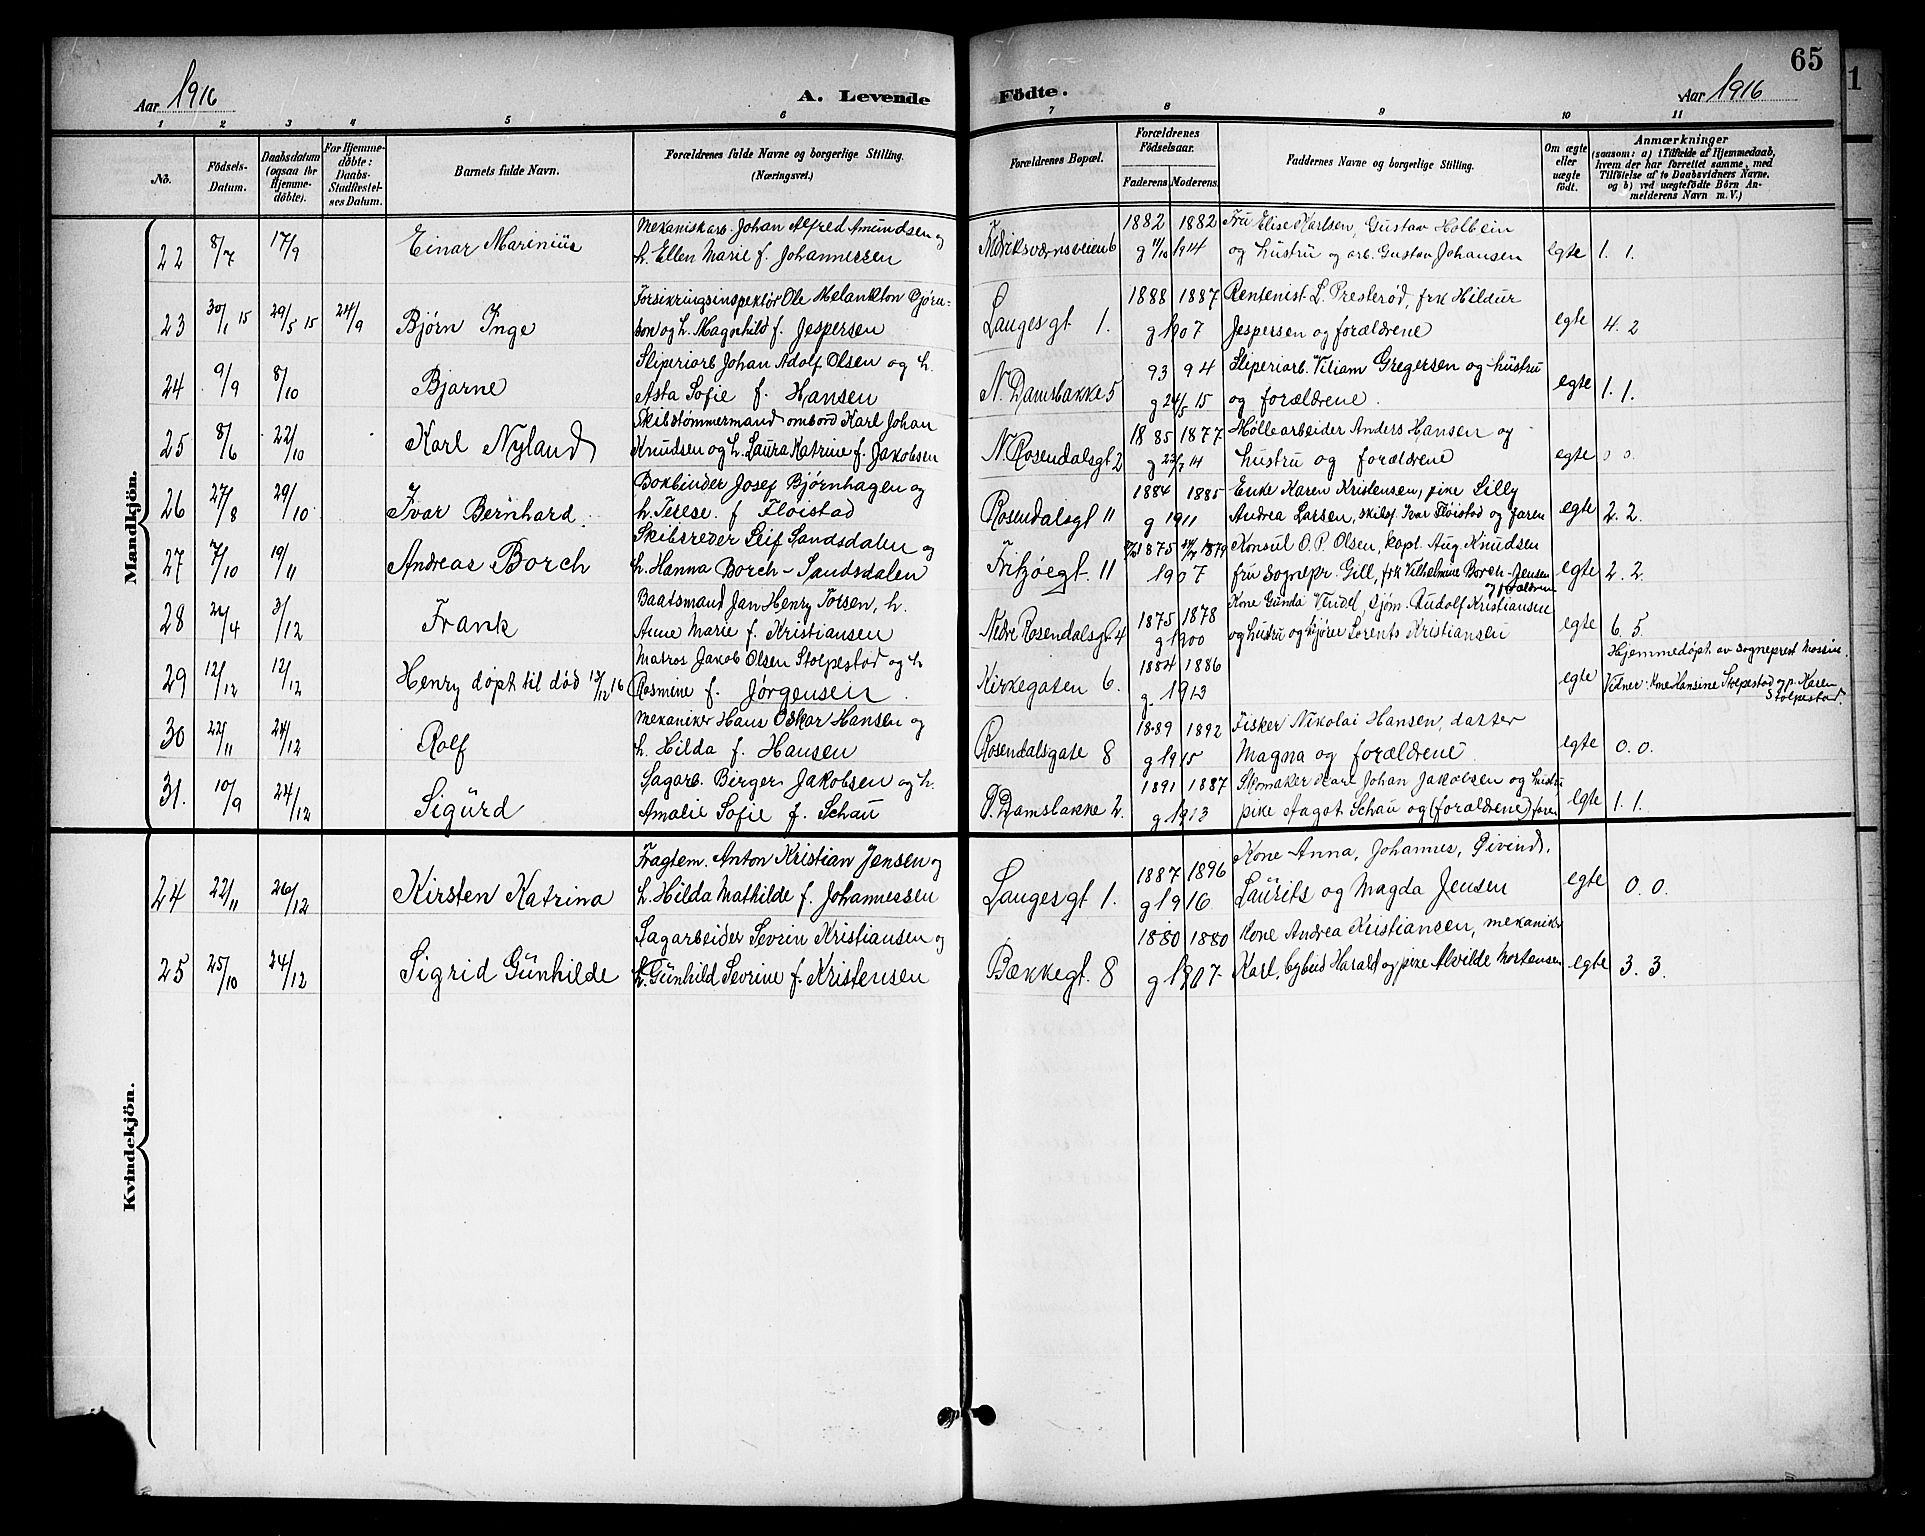 65
Aar 1916 A. Levende Födte. Aar 1916
1 2 3 4 5 6 7 8 9 10 11
No. Födsels-Datum. Daabsdatum (ogsaa for Hjemme-döbte). For Hjemme-döbte: Daabs-Stadfæstel-ses Datum. Barnets fulde Navn. Forældrenes fulde Navne og borgerlige Stilling. (Næringsvei.) Forældrenes Bopæl. Forældrenes Födselsaar. Faderens. Moderens. Faddernes Navne og borgerlige Stilling. Om ægte eller uægte födt. Anmærkninger (saasom: a) i Tilfælde af Hjemmedaab, hvem der har forrettet samme, med Tilföielse af to Daabsvidners Navne, og b) ved uægtefödte Börn An-melderens Navn m. V.)
Mandkjön.
Mekaniskarb. Johan Alfred Amundsen og 1882 1882 Fru Elise Karlsen, Gustav Holbein
22 8/7 17/9 Einar Marinius h. Ellen Marie f. Johannessen Fredriksværnsveien 6 g 11/10 1914 og hustru og arb. Gustav Johansen egte 1. 1.
Forsikringsinspektør Ole Melankton Bjørn- 1888 1887 Rentenist L. Presterød, frk Hildur
23 30/1 15 29/5 15 24/9 Bjørn Inge son og h. Magnhild f. Jespersen Langesgt 1. g 1907 Jespersen og forældrene egte 4. 2
Sliperiarb Johan Adolf Olsen og h. 93 94 Sliperiarb. Viliam Gregersen og hustru
24 9/9 8/10 Bjarne Asta Sofie f. Hansen N. Damsbakke 5 g 24/5 15 og forældrene. egte 1. 1.
Skibstømmermand ombord Karl Johan 1885 1877 Møllearbeider Anders Hansen og
25 8/6 22/10 Karl Nyland Knudsen og h. Laura Katrine f. Jakobsen N. Rosendalsgt 2 g 23/7 14 hustru og forældrene egte 0 0.
Bokbinder Josef Bjørnhagen og 1884 1885 Enke Karen Kristensen, pike Lilly
26 27/8 29/10 Ivar Bernhard. h. Terese. f Fløistad Rosendalsgt 11 g 1911 Andrea Larsen, skibsf. Ivar Fløistad og faren egte 2. 2.
Skibsreder Leif Sandsdalen og 1875 1879 Konsul O. P. Olsen, kapt. Aug Knudsen
27 7/10 19/11 Andreas Borch h. Hanna Borch-Sandsdalen Fritzøegt. 11 1907 fru sognepr. Gill, frk Vilhelmine Borch-Jensen og forældrene egte 2. 2.
Baatsmand Jan Henry Torsen, h. 1875 1878 Kone Gunda Vendel, sjøm. Rudolf Kristiansen
28 24/4 3/12 Frank Anne Marie f. Kristiansen Nedre Rosendalsgt 4 g 1900 og hustru og kjører Lorents Kristiansen egte 6. 5.
Matros Jakob Olsen Stolpestad og h 1884 1886 Hjemmedøpt av sogneprest
29 12/12 12/12 Henry døpt til død 13/12 16 Rosmine f. Jørgensen. Kirkegaten 6. g. 1913 egte Vidner: Kone Hansine Stolpestad og p. Karen Stolpestad.
Mekaniker Hans Oskar Hansen og 1889 1892 Fisker Nikolai Hansen, datter
30 22/11 24/12 Rolf h. Hilda f. Hansen Rosendalsgate 8 g 1915 Magna og forældrene egte 0. 0.
Sagarb. Birger Jakobsen og h. 1891 1887 Skomaker Karl Johan Jakobsen og hustru
31. 10/9 24/12 Sigurd Amalie Sofie f. Schau Damsbakke 2. g 1913 pike Aagot Schau og (forældrene) faren egte 1. 1.
Kvindekjön.
Fragtem. Anton Kristian Jensen og 1887 1896 Kone Anna, Johannes, Øivind,
24 22/11 26/12 Kirsten Katrina h. Hilda Mathilde f. Johannessen Langesgt 1. g 1916 Laurits og Magda Jensen egte 0. 0.
Sagarbeider Sevrin Kristiansen og 1880 1880 Kone Andrea Kristiansen, mekaniker
25 25/10 24/12 Sigrid Gunhilde h. Gunhild Sevrine f. Kristensen Bækkegt. 8 g 1907 Karl, bybud Harald og pike Alvilde Mortensen egte 3. 3.